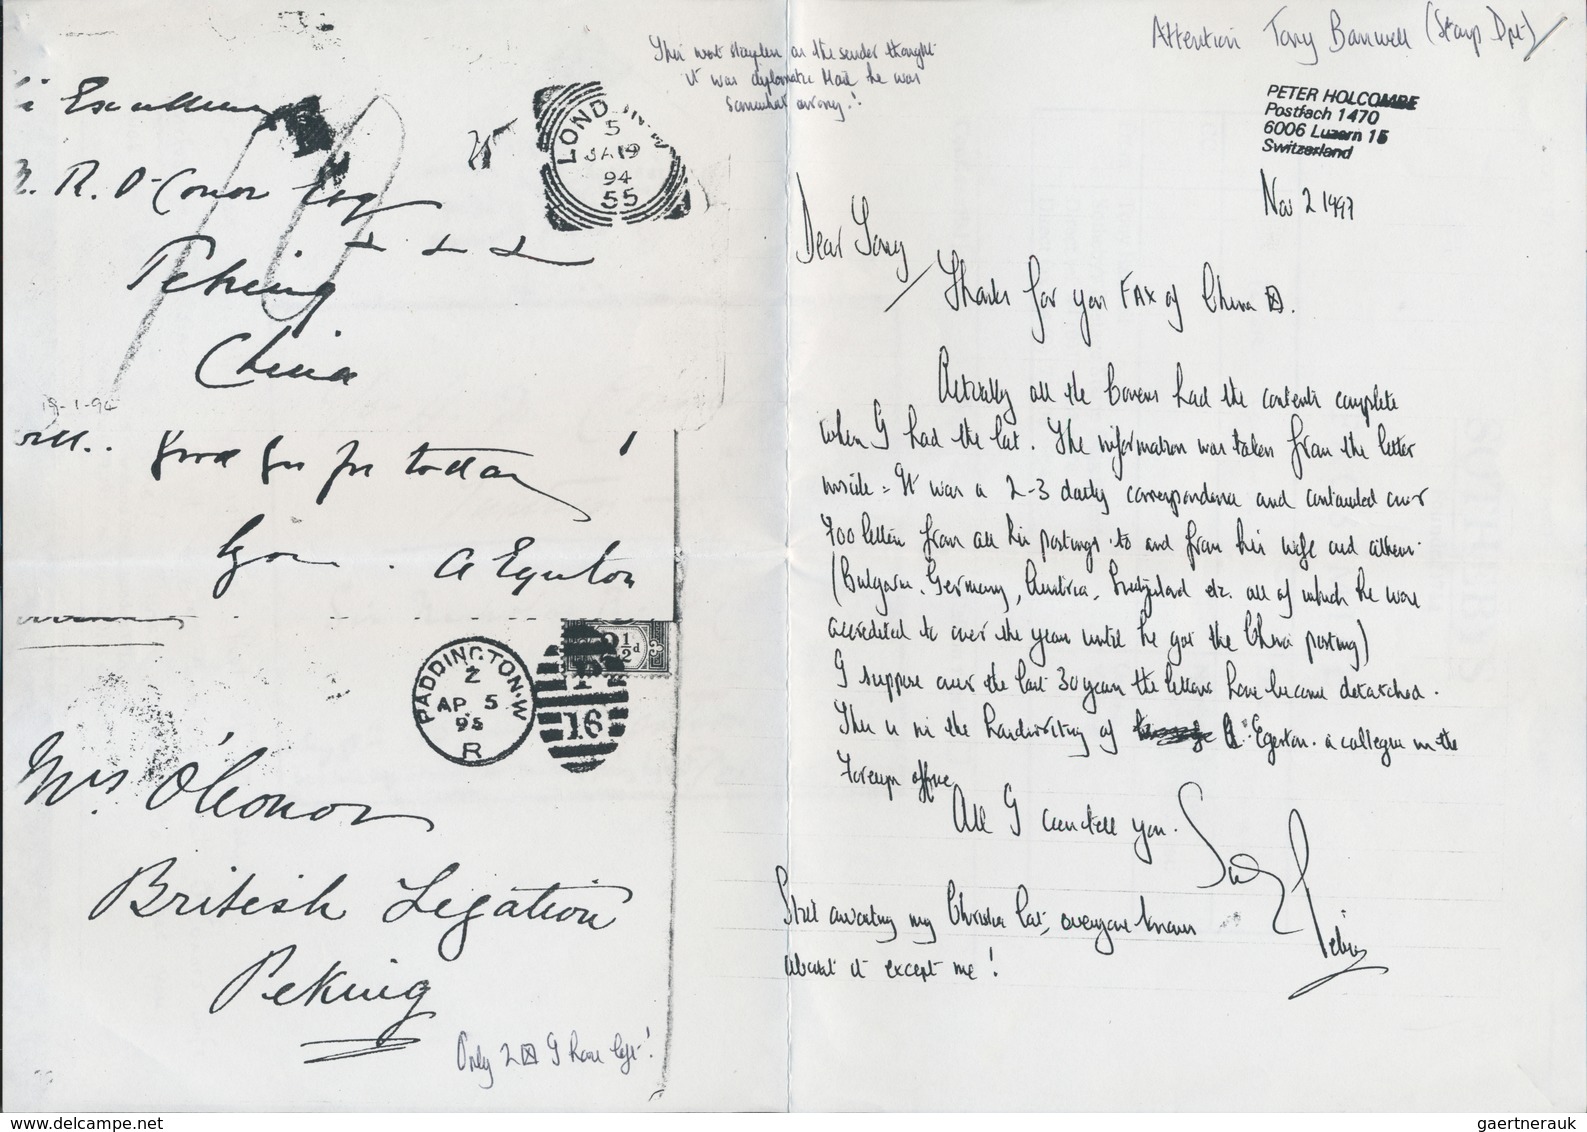 Excellency
R. O'Conor Esq
Peking
China
LONDON.W
5
JA 19
94
55
19-1-94
good bye for today
Yrs . A Egerton
2½d
PADDINGTON.W
Z
AP 5
95
R
16
Mrs O'Conor
British Legation
Peking
Only 2 ☒ I have left!
This went stampless as the sender thought
it was diplomatic Mail he was
somewhat wrong!
Attention Tony Banwell (Stamp Dpt)
PETER HOLCOMBE
Postfach 1470
6006 Luzern 15
Switzerland
Nov 2 1997
Dear Tony
Thanks for your FAX of China ☒.
Actually all the Covers had the contents complete
when I had the lot. The information was taken from the letter
inside = It was a 2-3 daily correspondence and contained over
700 letters from all his postings to and from his wife and others
(Bulgaria, Germany, Austria, Switzerland etc. all of which he was
accredited to over the years until he got the China posting)
I suppose over the last 30 years the letters have become detatched.
This is in the handwriting of A. Egerton. a collegue in the
Foreign office
All I can tell you.
Peter
Still awaiting my Christies Cat, everyone knows
about it except me!
gaertnerauk